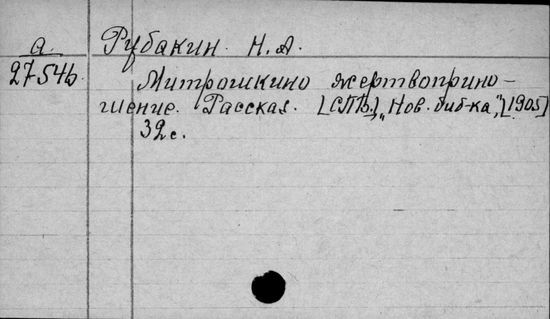 а Рубакин. Н.А.
27546. Митрошкино жертвоприно-
шение. Рассказ. [СПб.] „Нов. биб-ка", [1905]
32с.